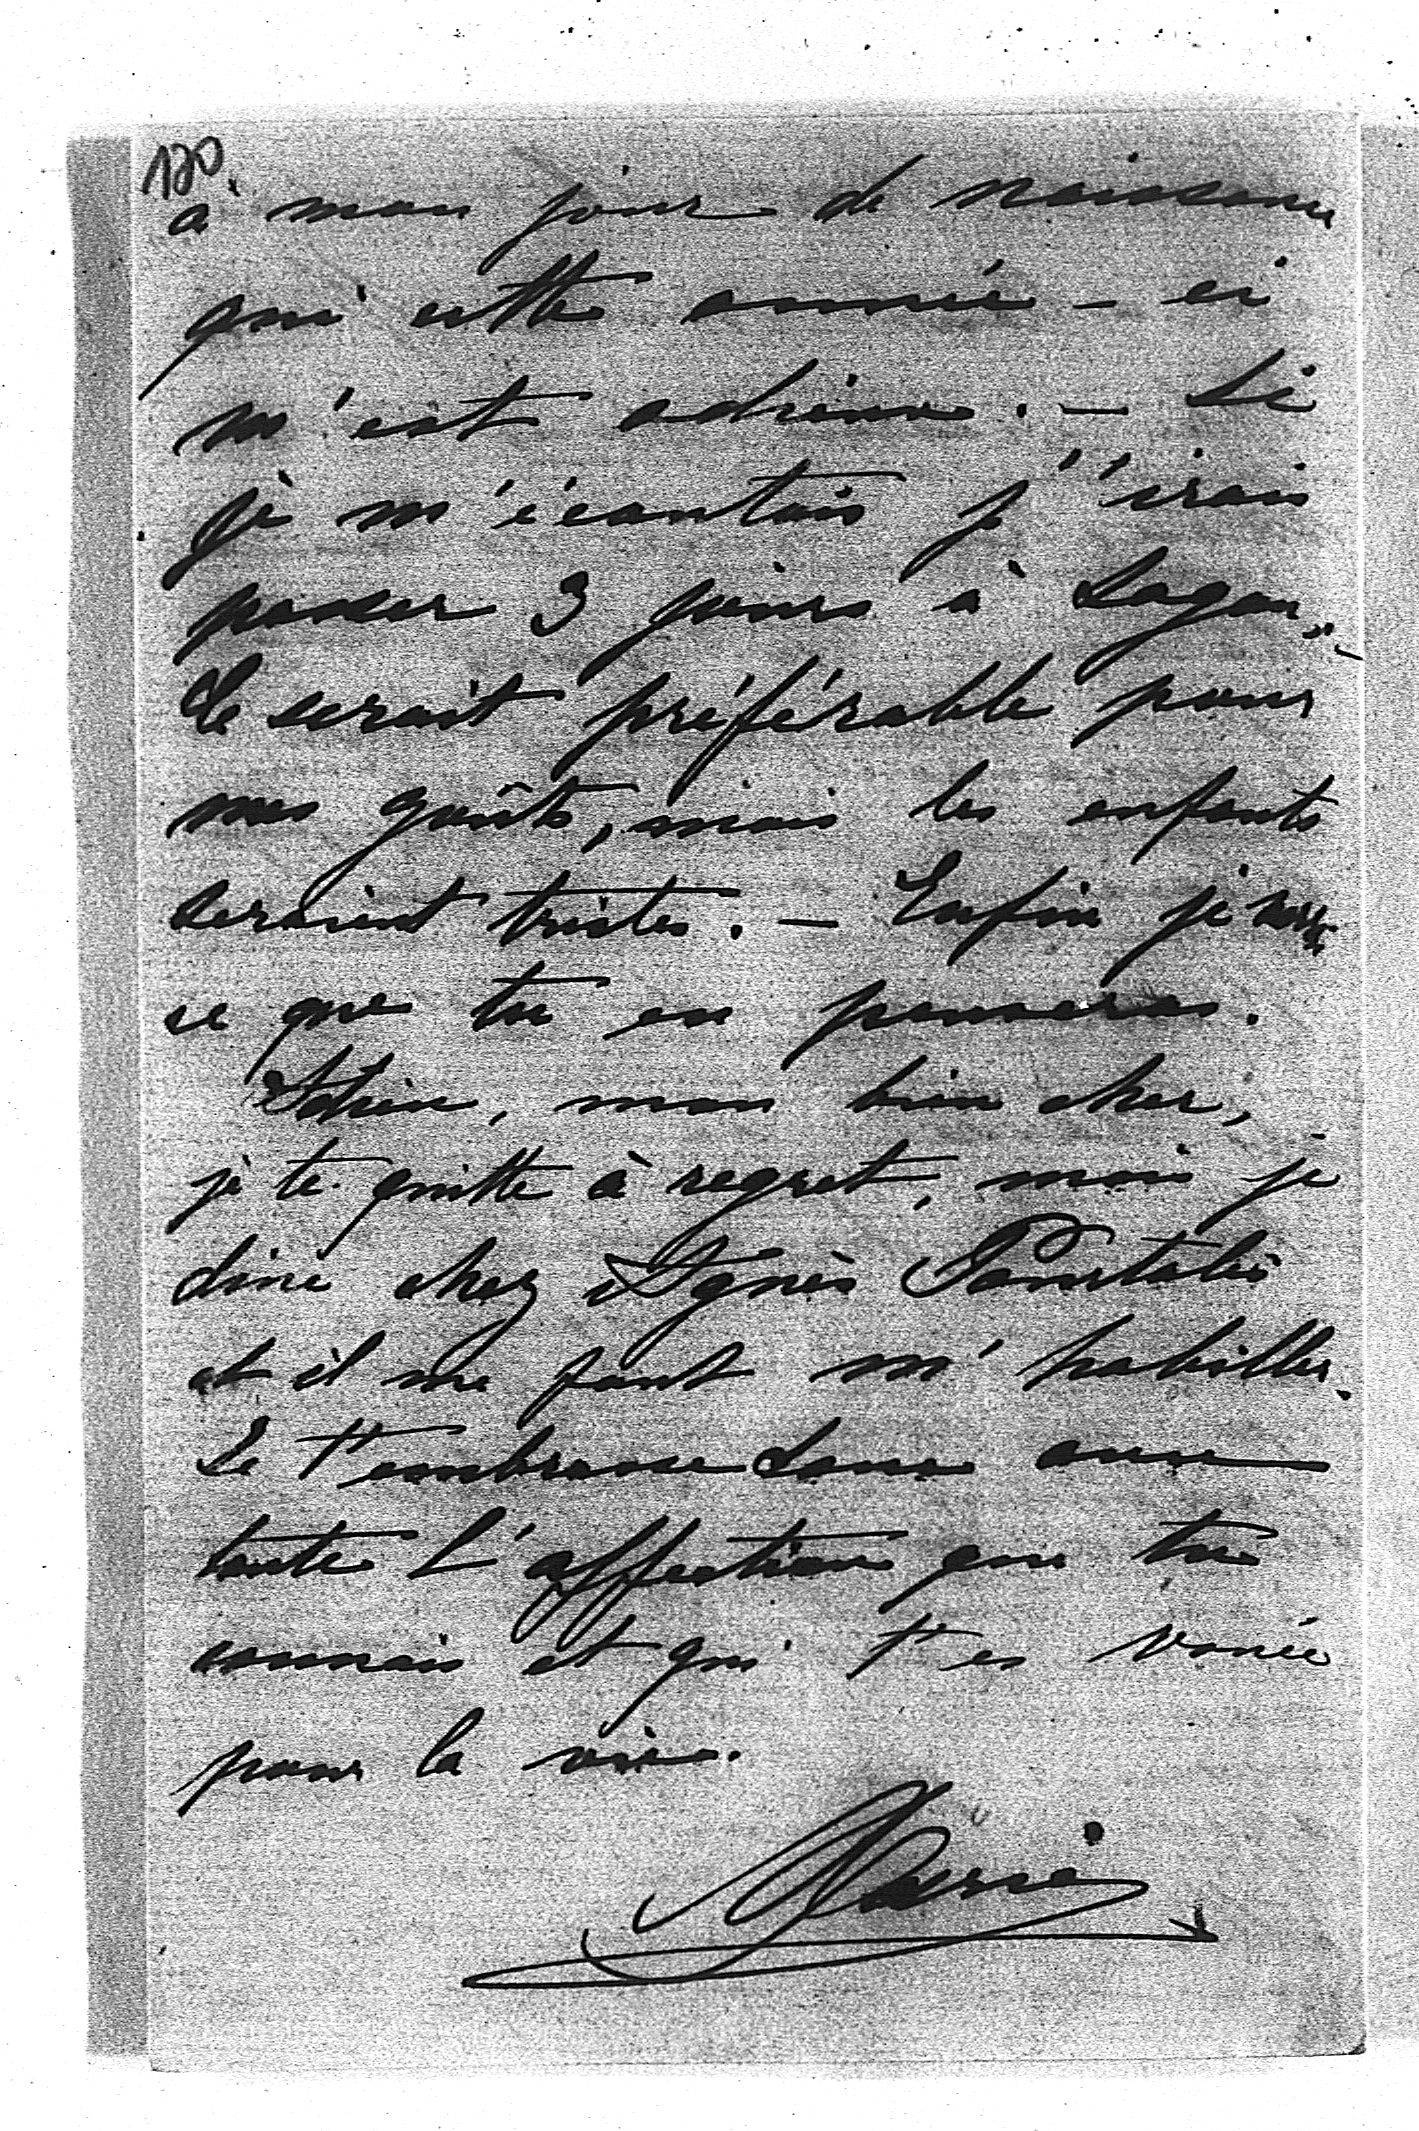 120
à mon jour de naissance
qui cette année-ci
m'est odieux. — Si
je m'écoutais j'irais
passer 3 jours à Sagan,
Ce serait préférable pour
mes goûts, mais les enfants
seraient tristes. — Enfin je verrai
ce que tu en penseras.
Adieu, mon bien cher,
je te quitte à regret, mais je
dîne chez Agnès Pourtalès
et il me faut m'habiller.
Je t'embrasse donc avec
toute l'affection que tu
connais et qui t'es vouée
pour la vie.
Marie